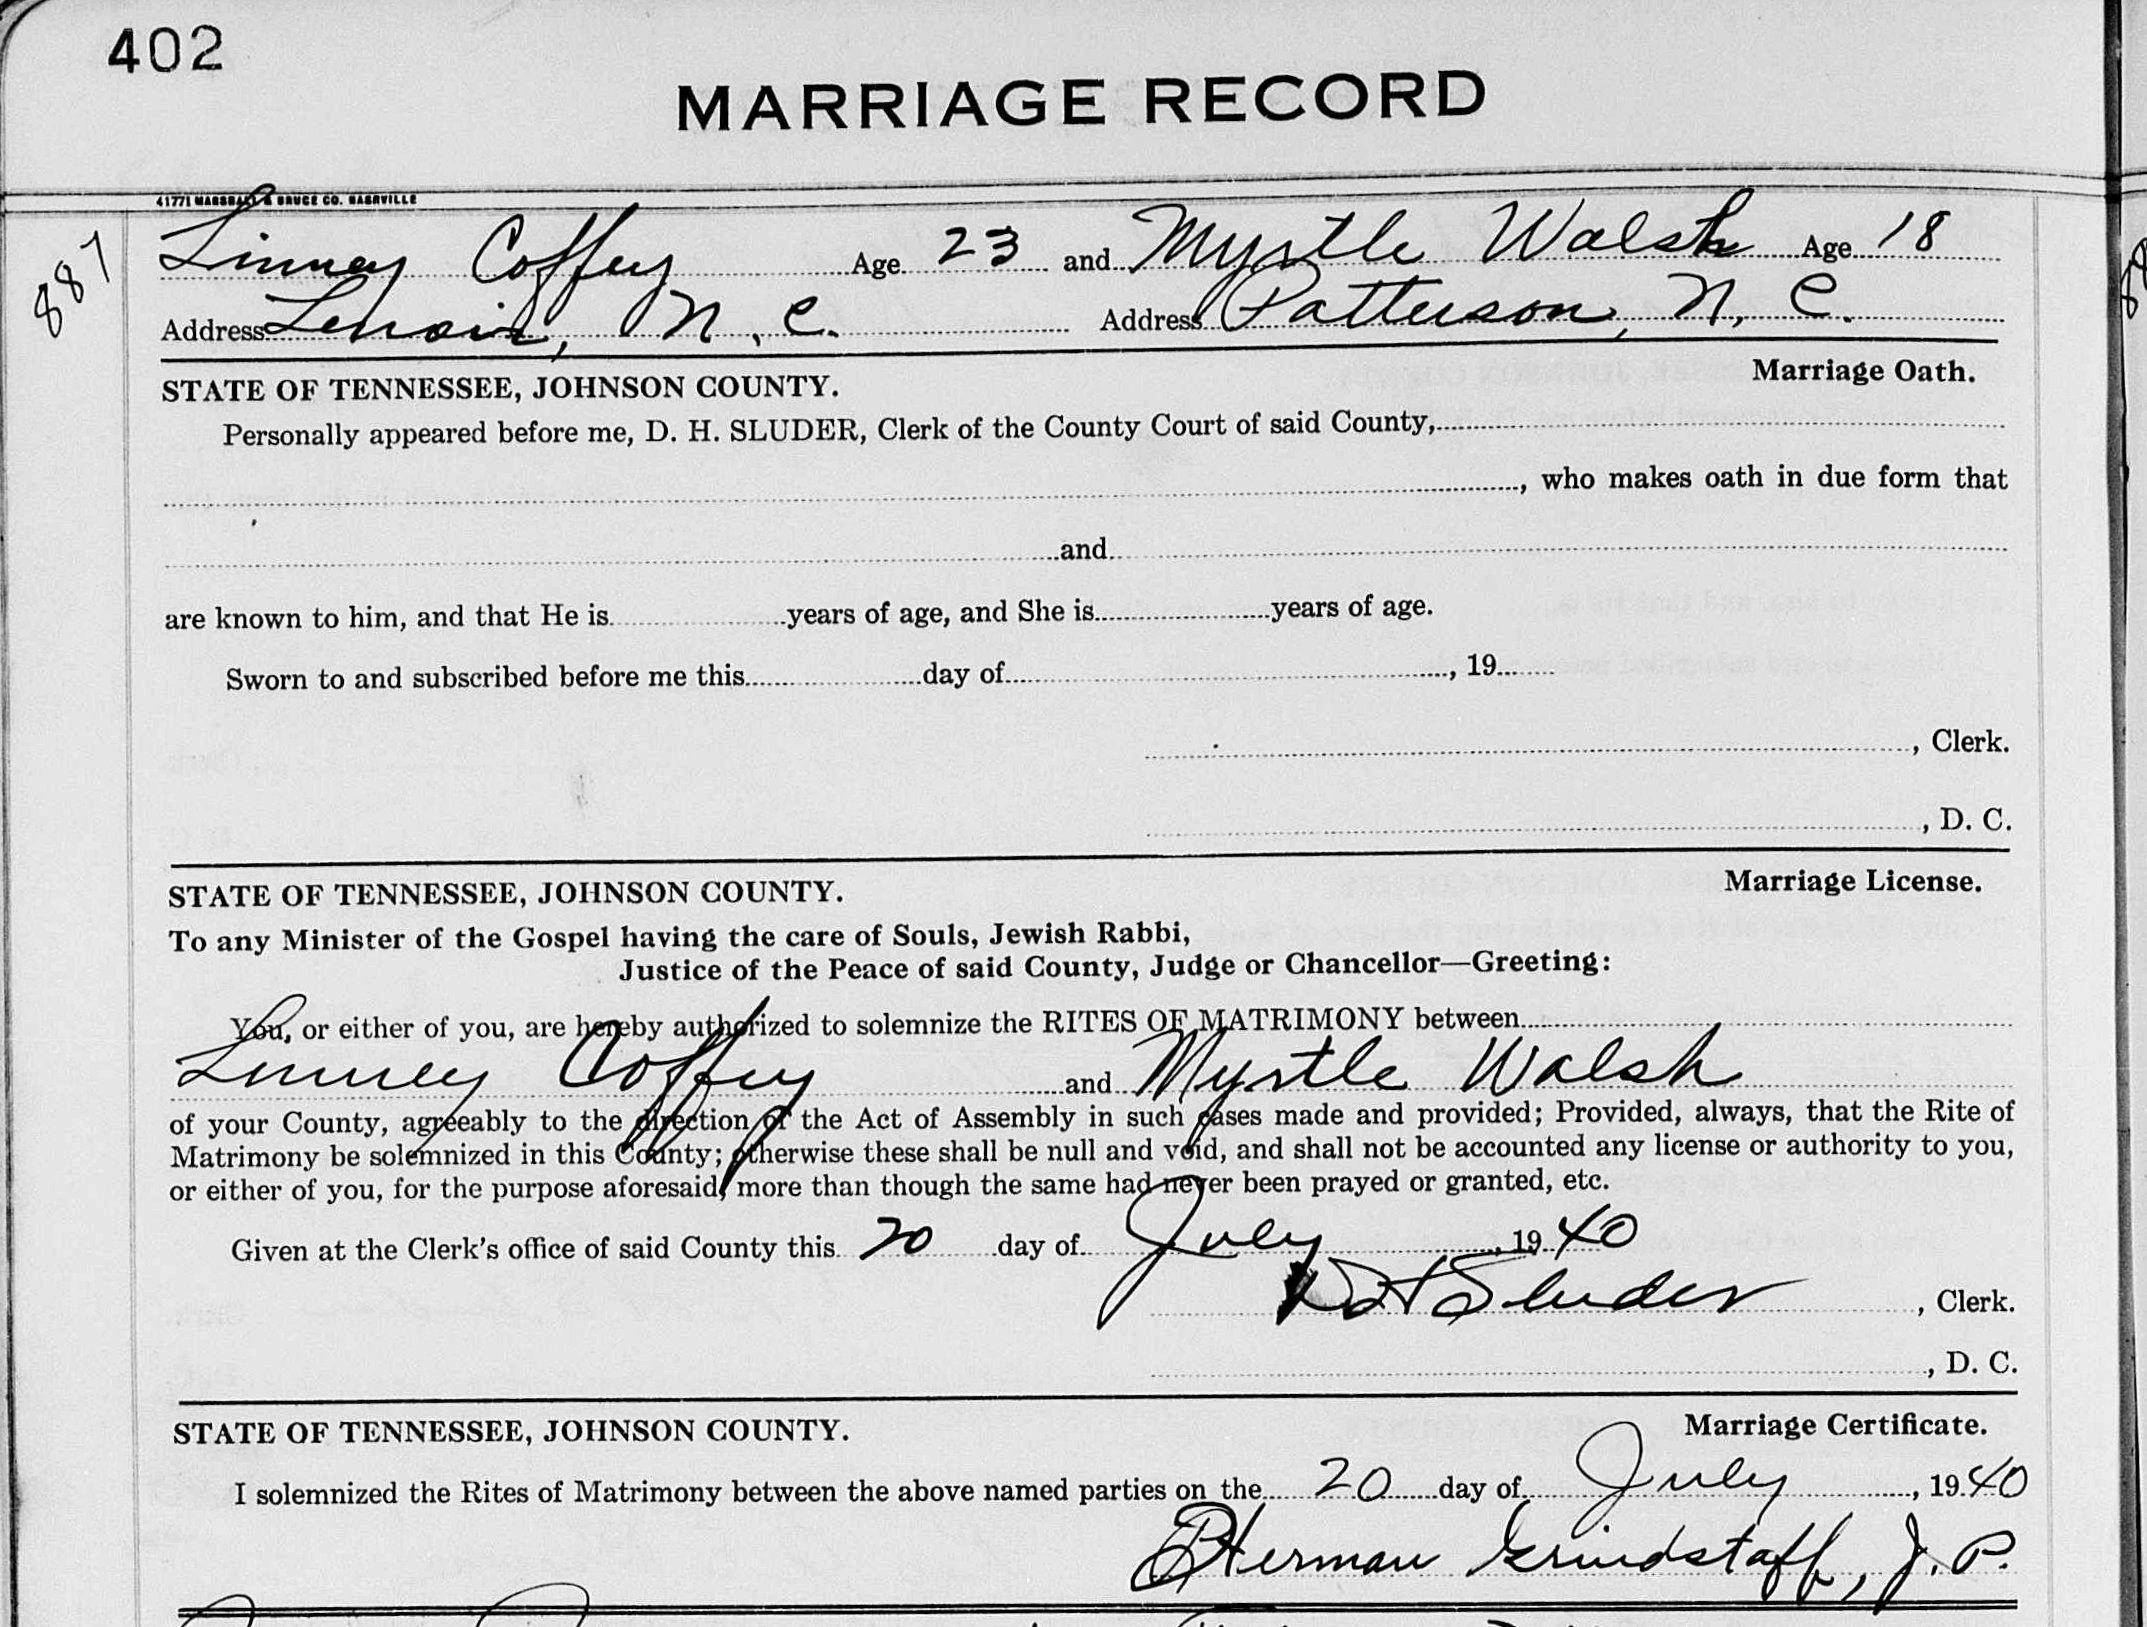 402
MARRIAGE RECORD
41771 MARSHALL & BRUCE CO. NASHVILLE
887
Linney Coffey Age 23 and Myrtle Walsh Age 18
Address Lenoir, N. C. Address Patterson, N. C.
STATE OF TENNESSEE, JOHNSON COUNTY. Marriage Oath.
Personally appeared before me, D. H. SLUDER, Clerk of the County Court of said County,
, who makes oath in due form that
and
are known to him, and that He is years of age, and She is years of age.
Sworn to and subscribed before me this day of , 19
, Clerk.
, D. C.
STATE OF TENNESSEE, JOHNSON COUNTY. Marriage License.
To any Minister of the Gospel having the care of Souls, Jewish Rabbi,
Justice of the Peace of said County, Judge or Chancellor—Greeting:
You, or either of you, are hereby authorized to solemnize the RITES OF MATRIMONY between
Linney Coffey and Myrtle Walsh
of your County, agreeably to the direction of the Act of Assembly in such cases made and provided; Provided, always, that the Rite of
Matrimony be solemnized in this County; otherwise these shall be null and void, and shall not be accounted any license or authority to you,
or either of you, for the purpose aforesaid, more than though the same had never been prayed or granted, etc.
Given at the Clerk's office of said County this 20 day of July, 1940
D H Sluder, Clerk.
, D. C.
STATE OF TENNESSEE, JOHNSON COUNTY. Marriage Certificate.
I solemnized the Rites of Matrimony between the above named parties on the 20 day of July, 1940
Herman Grindstaff, J. P.